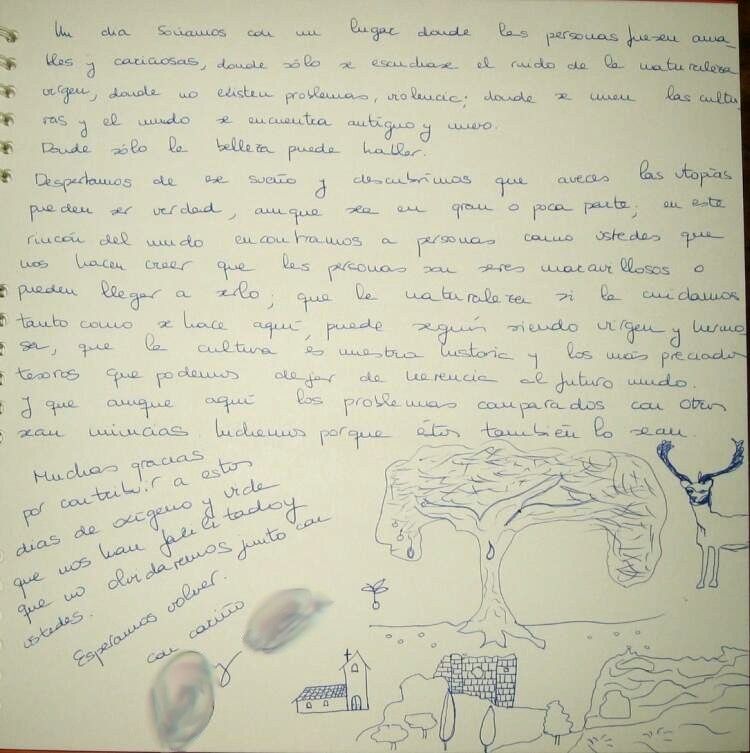 Un dia soñamos con un lugar donde las personas fuesen ama-
bles y cariñosas, donde sólo se escuchase el ruido de la naturaleza
virgen, donde no existen problemas, violencia; donde se unen las cultu-
ras y el mundo se encuentra antiguo y nuevo.
Donde sólo la belleza puede hallar.
Despertamos de ese sueño y descubrimos que aveces las utopías
pueden ser verdad, aunque sea en gran o poca parte; en este
rincón del mundo encontramos a personas como ustedes que
nos hacen creer que las personas son seres maravillosos o
pueden llegar a serlo; que la naturaleza si la cuidamos
tanto como se hace aquí, puede seguir siendo virgen y hermo-
sa, que la cultura és nuestra historia y los más preciados
tesoros que podemos dejar de herencia al futuro mundo.
Y que aunque aquí los problemas comparados con otros
sean minucias. luchemos porque éstos también lo sean.
Muchas gracias
por contribuir a estos
días de oxígeno y vida
que nos han facilitado y
que no olvidaremos junto con
ustedes.
Esperamos volver.
con cariño
y